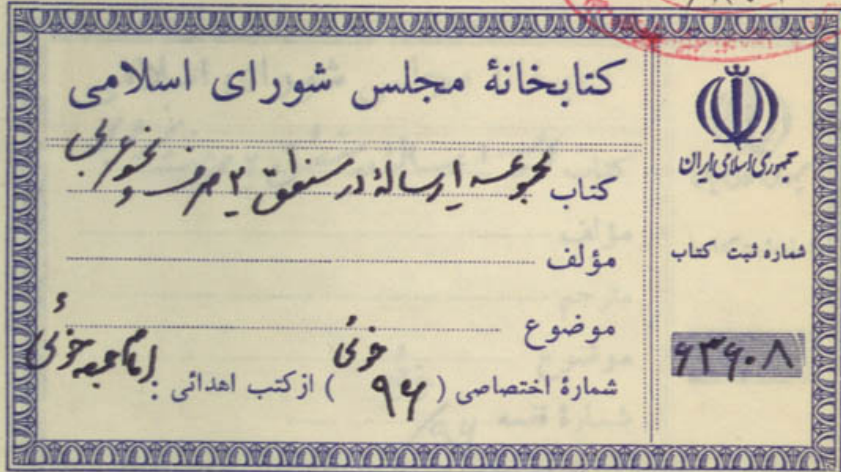 کتابخانهٔ مجلس شورای اسلامی
کتاب مجموعه ۱ رساله در منطق ۲ صرف و نحو عربی
مؤلف
موضوع
شمارهٔ اختصاصی ( ۹۶ خوئی ) از کتب اهدائی : امام جمعه خوئی
جمهوری اسلامی ایران
شماره ثبت کتاب
۶۳۶۰۸